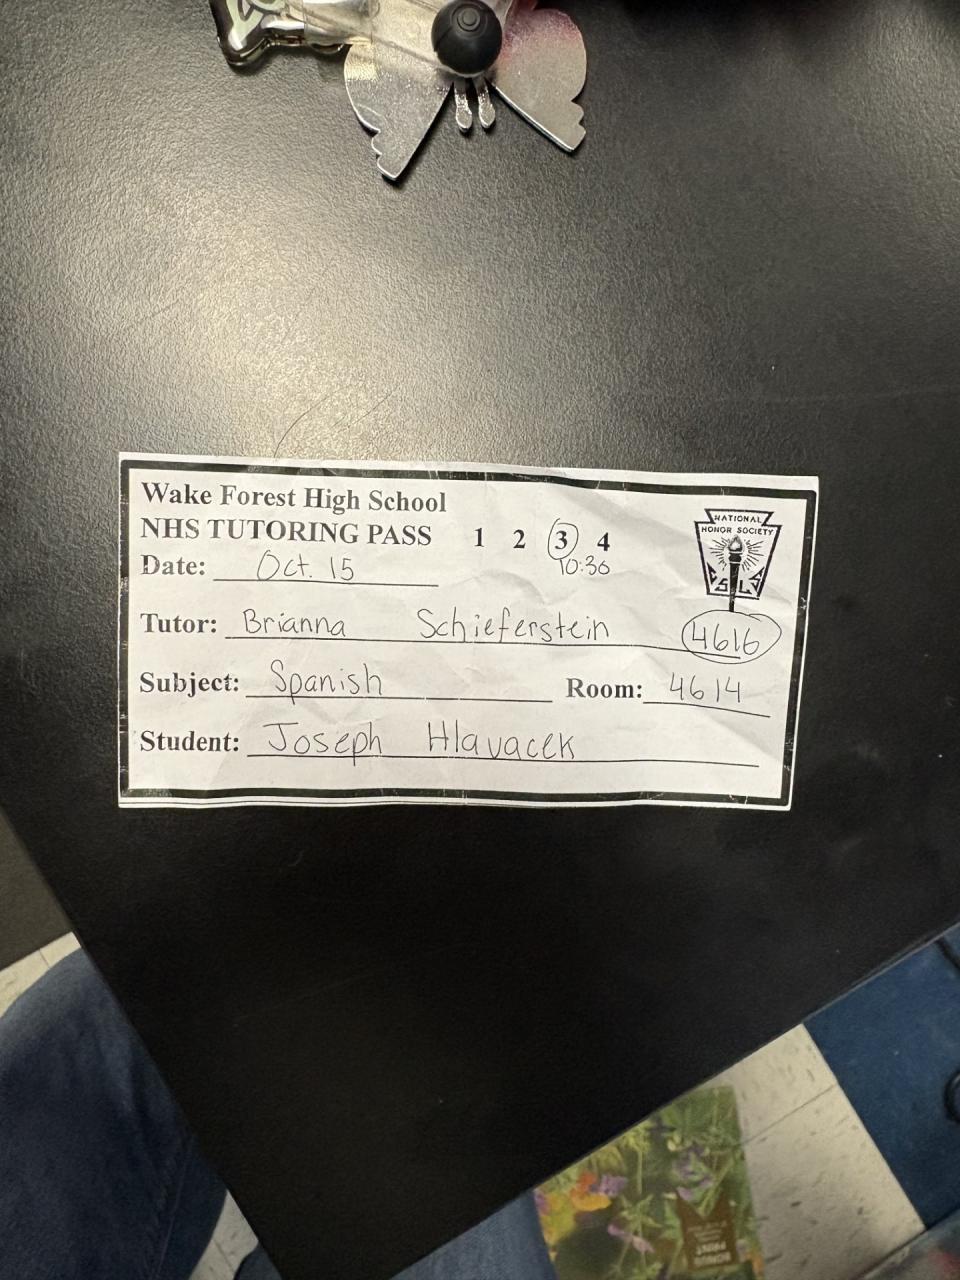 Wake Forest High School
NHS TUTORING PASS 1 2 3 4
10:36
Date: Oct. 15
NATIONAL
HONOR SOCIETY
CSLS
Tutor: Brianna Schieferstein 4616
Subject: Spanish Room: 4614
Student: Joseph Hlavacek